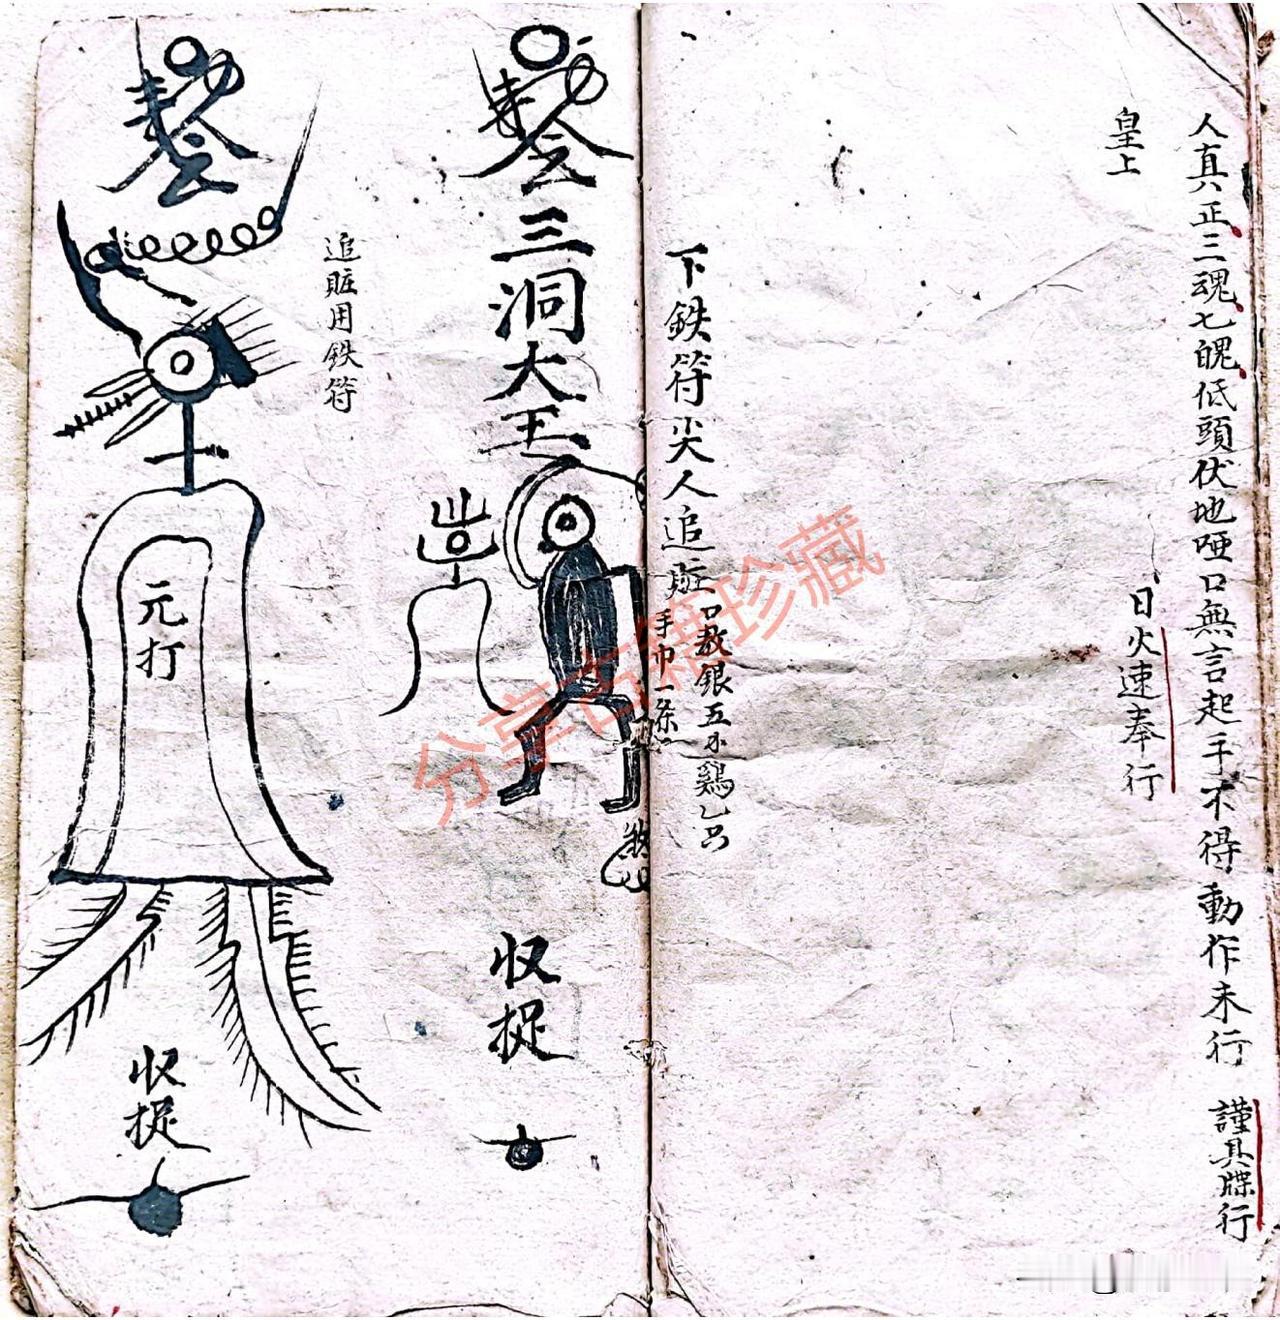 人真八正三魂七魄低頭伏地啞口無言起手不得動作未行 謹具牒行
皇上
日火速奉行
下鉄符尖人追賍
口教銀五小鷄乙只
手巾一条
三洞大王
收捉
追賍用鉄符
元打
收捉
分享古籍珍藏